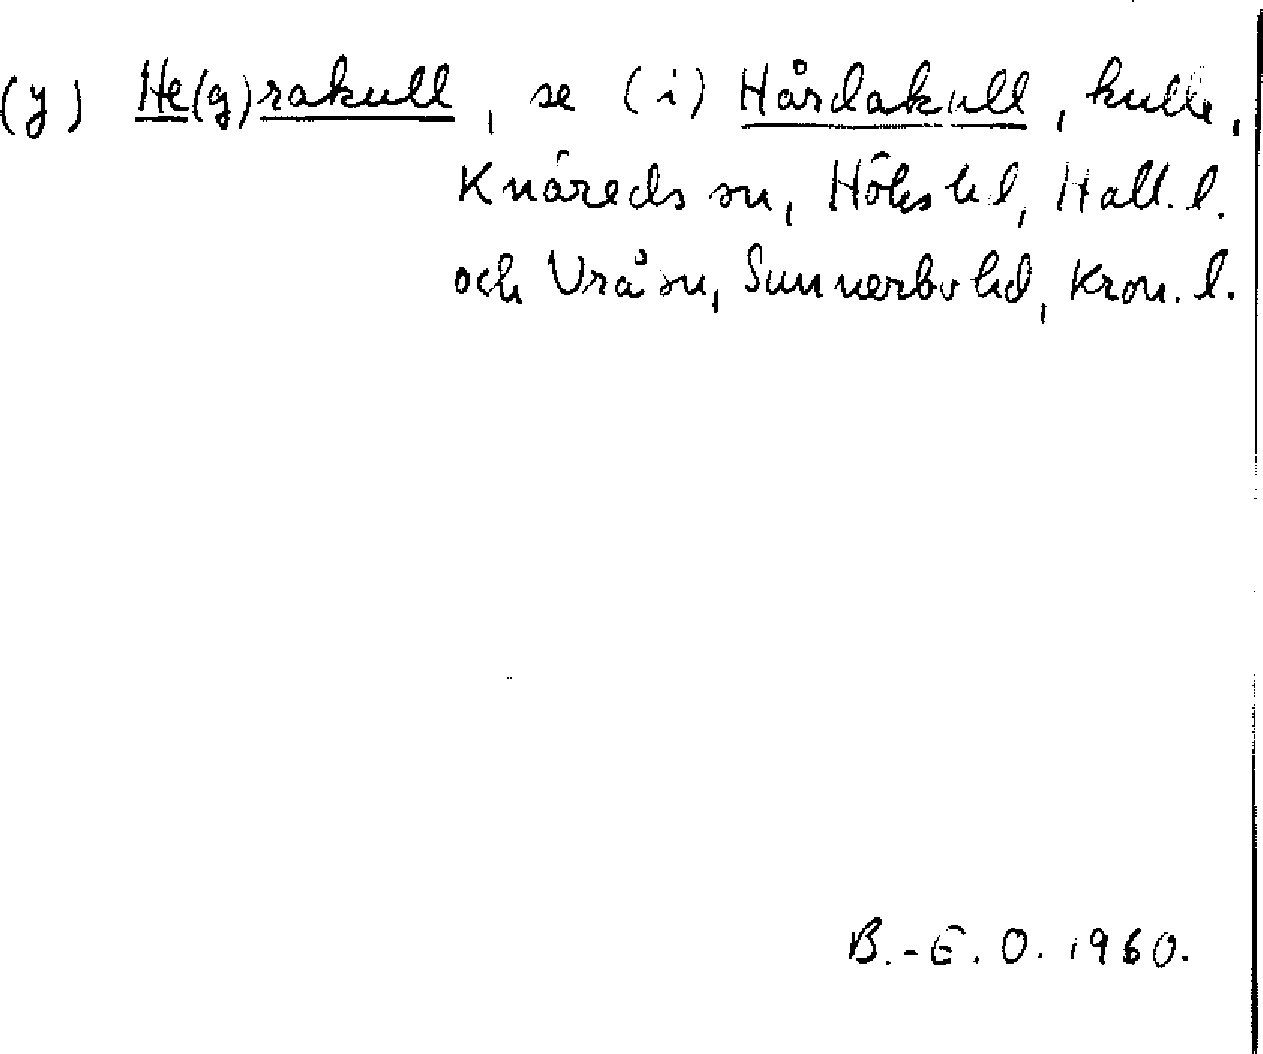 (y) He(g)rakull, se (i) Hårdakull, kulle,
Knäreds sn, Höks hd, Hall. l.
och Vrå sn, Sunnerbo hd, Kron. l.
B.-E. O. 1960.